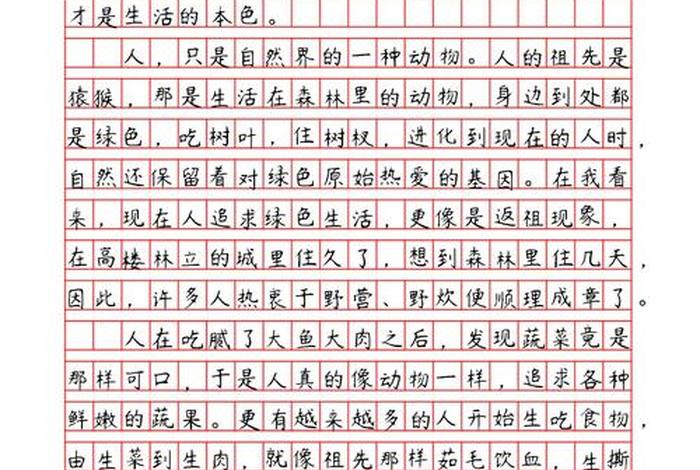 才是生活的本色。
人，只是自然界的一种动物。人的祖先是
猿猴，那是生活在森林里的动物，身边到处都
是绿色，吃树叶，住树杈，进化到现在的人时，
自然还保留着对绿色原始热爱的基因。在我看
来，现在人追求绿色生活，更像是返祖现象，
在高楼林立的城里住久了，想到森林里住几天，
因此，许多人热衷于野营、野炊便顺理成章了。
人在吃腻了大鱼大肉之后，发现蔬菜竟是
那样可口，于是人真的像动物一样，追求各种
鲜嫩的蔬果。更有越来越多的人开始生吃食物，
由生菜到生肉，就像祖先那样茹毛饮血，生撕